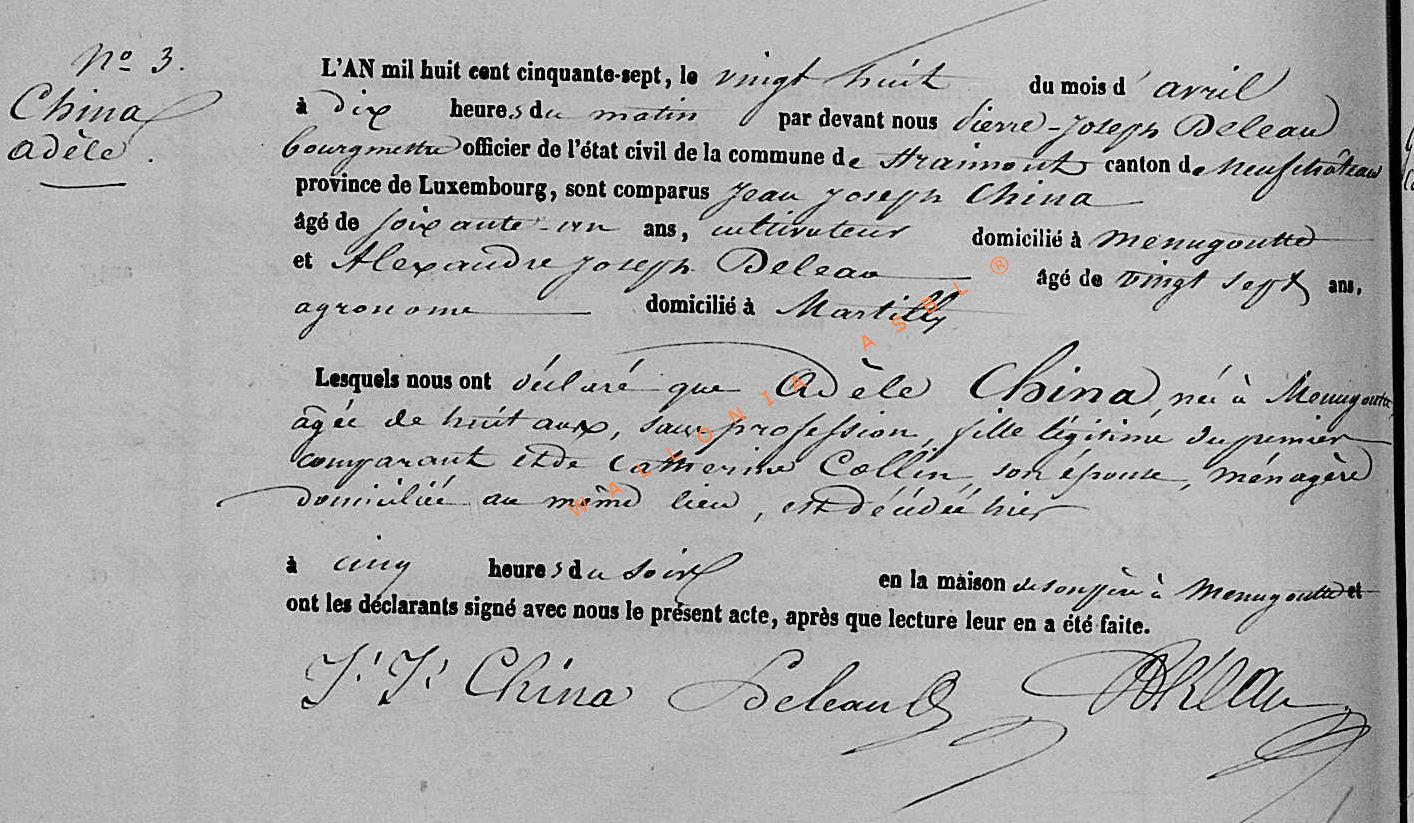 No 3.
China
Adèle.
L'AN mil huit cent cinquante-sept, le vingt huit du mois d'avril
à dix heures du matin par devant nous Pierre-Joseph Deleau
bourgmestre officier de l'état civil de la commune de Straimont canton de Neufchâteau
province de Luxembourg, sont comparus Jean Joseph China
âgé de soixante-un ans, cultivateur domicilié à Menugoutte
et Alexandre Joseph Deleau âgé de vingt sept ans,
agronome domicilié à Martilly
Lesquels nous ont déclaré que Adèle China, née à Menugoutte,
âgée de huit ans, sans profession, fille légitime du premier
comparant et de Catherine Collin, son épouse, ménagère
domiciliée au même lieu, est décédée hier
à cinq heures du soir en la maison de son père à Menugoutte et
ont les déclarants signé avec nous le présent acte, après que lecture leur en a été faite.
J. J. China Deleau Deleau
WALLONIA ASBL ®